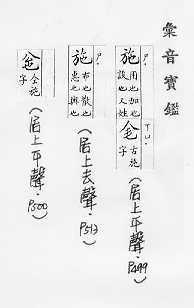 彙音寶鑑
施
用也加也
設也又姓
古施
字
(居上平聲·P499)
施
布也散也
惠也與也
(居上去聲·P513)
仝施
字
(居上平聲·P500)